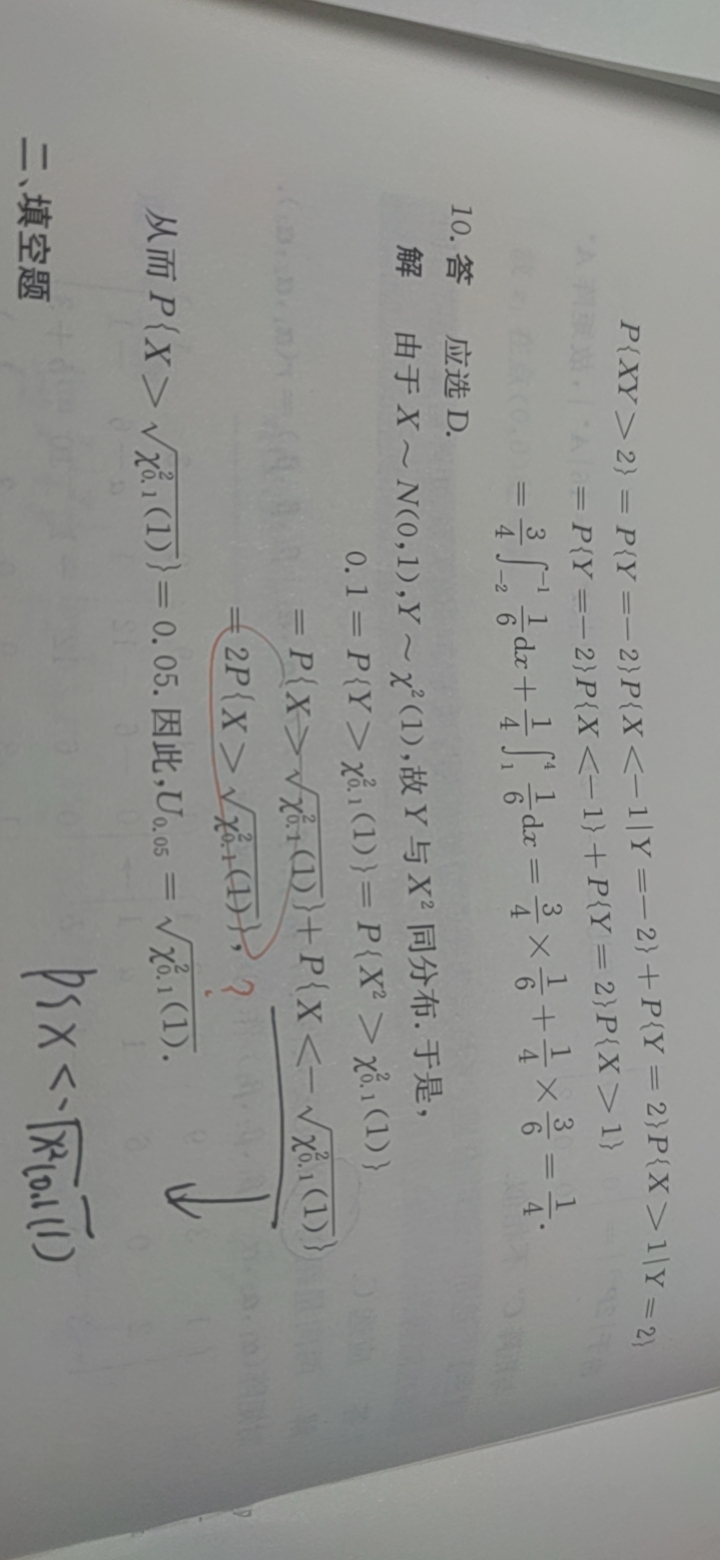 P{XY > 2} = P{Y = −2}P{X < −1|Y = −2} + P{Y = 2}P{X > 1|Y = 2}
= P{Y = −2}P{X < −1} + P{Y = 2}P{X > 1}
= 3/4 ∫_{−2}^{−1} 1/6 dx + 1/4 ∫_1^4 1/6 dx = 3/4 × 1/6 + 1/4 × 3/6 = 1/4.
10. 答 应选 D.
解 由于 X ~ N(0,1), Y ~ χ²(1), 故 Y 与 X² 同分布. 于是,
0.1 = P{Y > χ²_{0.1}(1)} = P{X² > χ²_{0.1}(1)}
= P{X > √(χ²_{0.1}(1))} + P{X < −√(χ²_{0.1}(1))}
= 2P{X > √(χ²_{0.1}(1))}, ?
从而 P{X > √(χ²_{0.1}(1))} = 0.05. 因此, U_{0.05} = √(χ²_{0.1}(1)).
P{X < -√(χ²(0.1(1)
二、填空题